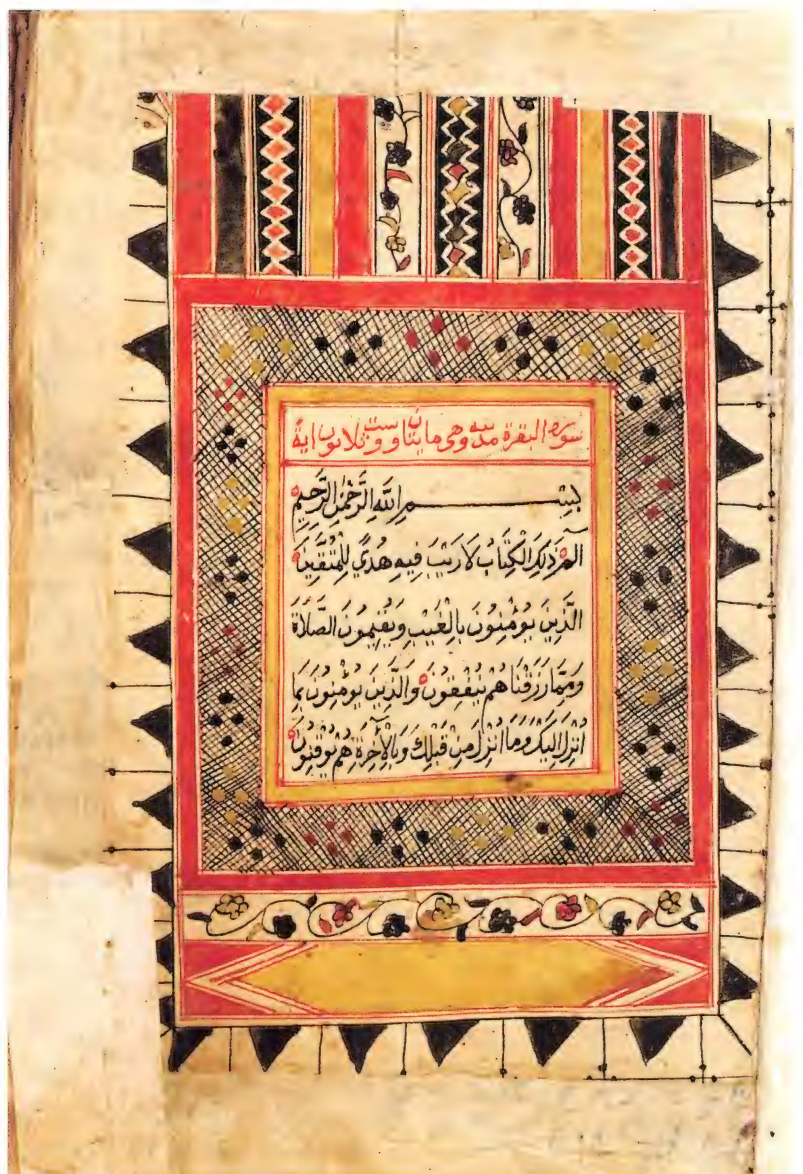 سورة البقرة مدنية وهي مايتان وست وثلاثون اية
بِسْمِ اللَّهِ الرَّحْمٰنِ الرَّحِيمِ
الٓمٓ ذَلِكَ الْكِتَابُ لَا رَيْبَ فِيهِ هُدًي لِّلْمُتَّقِينَ
الَّذِينَ يُؤْمِنُونَ بِالْغَيْبِ وَيُقِيمُونَ الصَّلَاةَ
وَمِمَّا رَزَقْنَاهُمْ يُنْفِقُونَ وَالَّذِينَ يُؤْمِنُونَ بِمَا
اُنْزِلَ اِلَيْكَ وَمَا اُنْزِلَ مِنْ قَبْلِكَ وَبِالْاٰخِرَةِ هُمْ يُوقِنُونَ